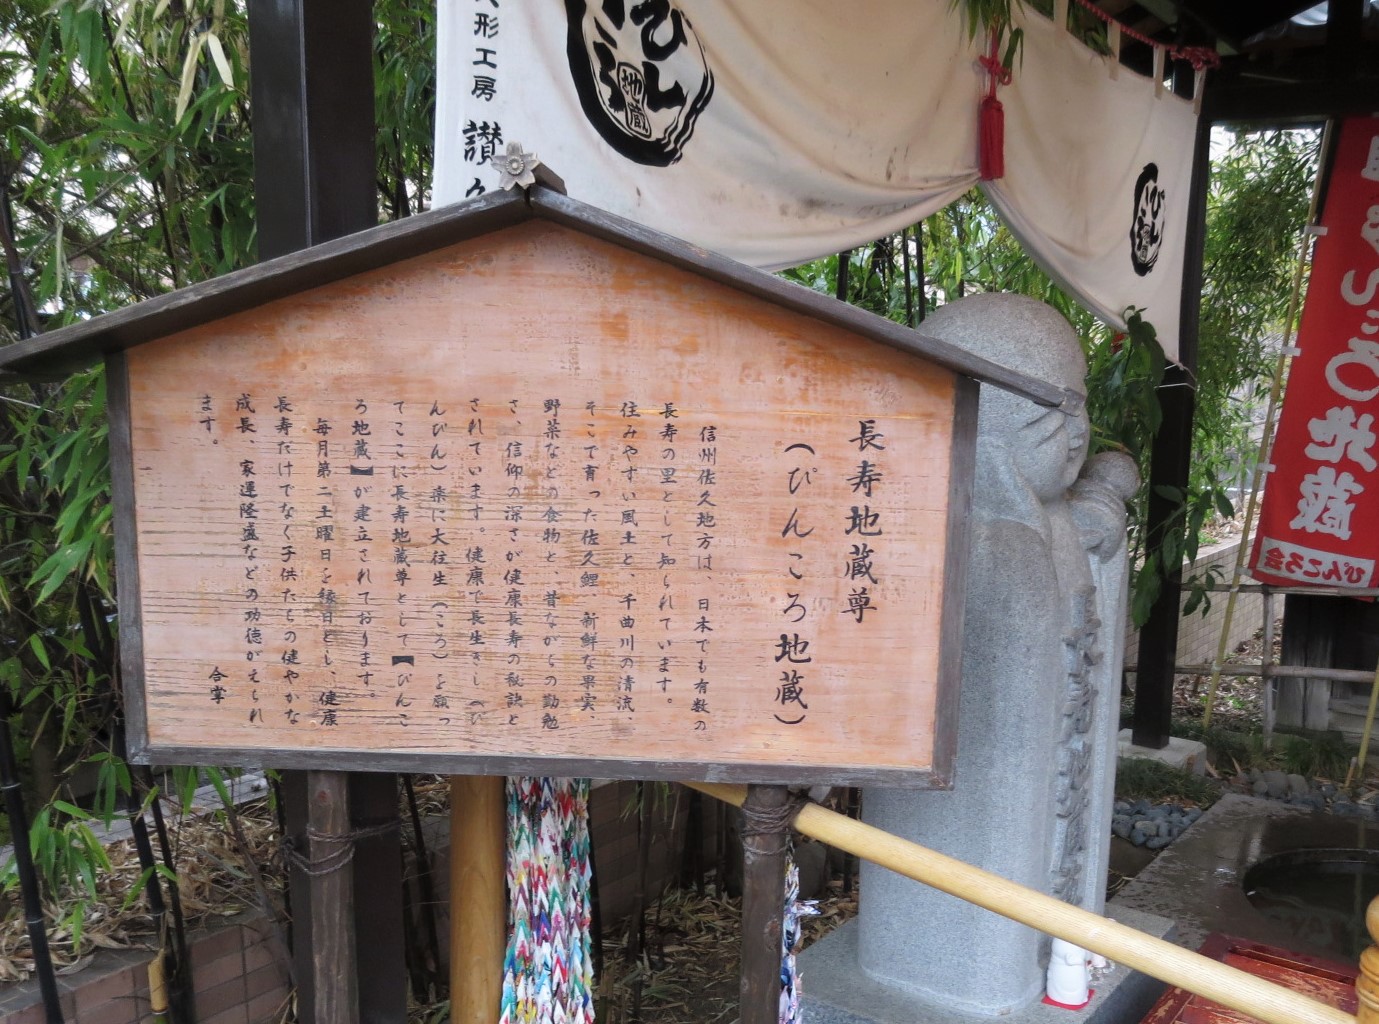 長寿地蔵尊
（ぴんころ地蔵）
信州佐久地方は、日本でも有数の
長寿の里として知られています。
住みやすい風土と、千曲川の清流、
そこで育った佐久鯉、新鮮な果実、
野菜などの食物と、昔ながらの勤勉
さ、信仰の深さが健康長寿の秘訣と
されています。健康で長生きし（ぴ
んぴん）楽に大往生（ころ）を願っ
てここに長寿地蔵尊として【ぴんこ
ろ地蔵】が建立されております。
毎月第二土曜日を縁日とし、健康
長寿だけでなく子供たちの健やかな
成長、家運隆盛などの功徳がえられ
ます。
合掌
形工房
讃
ぴんころ
地蔵
ぴんころ
地蔵
んころ地蔵
ぴんころ会